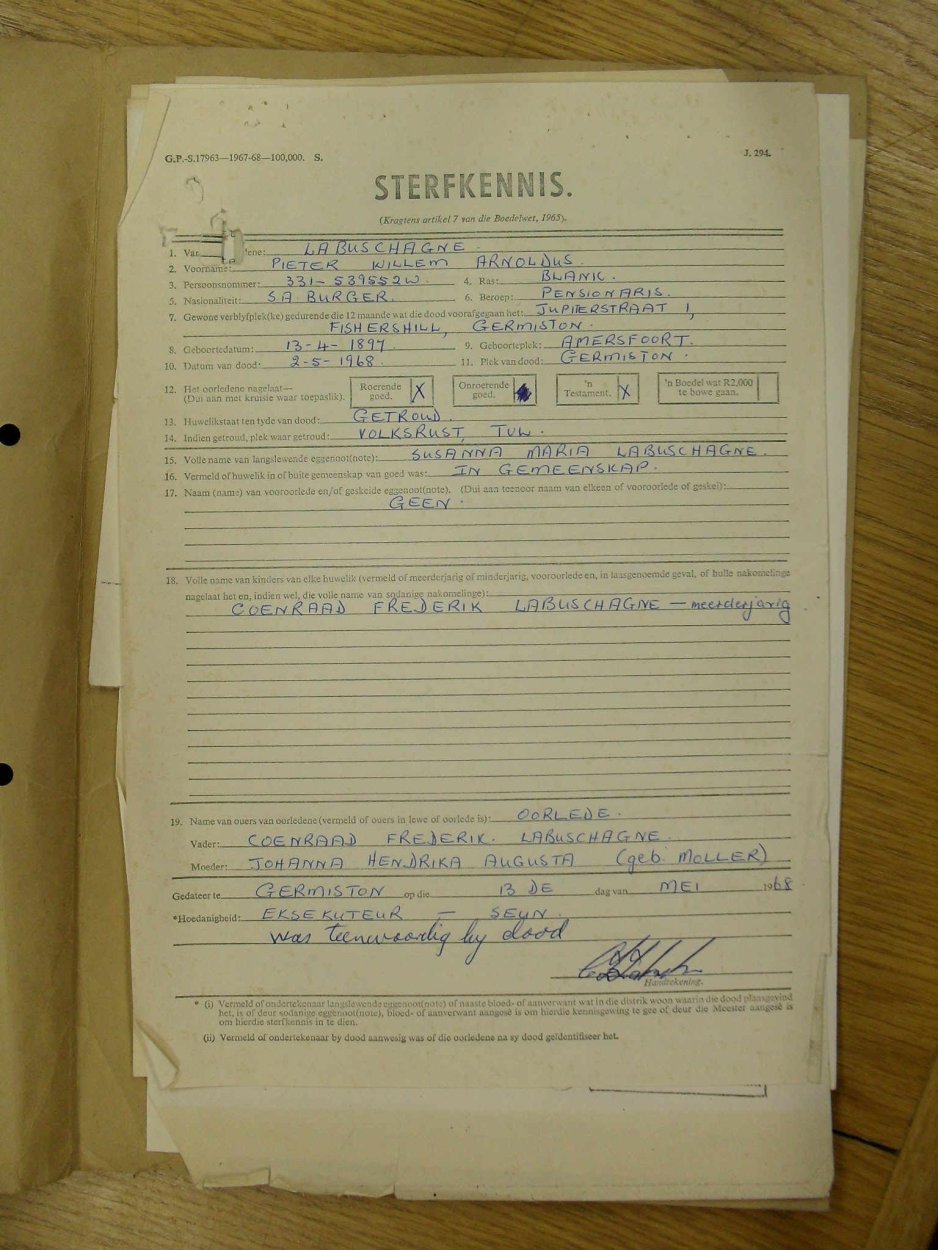 G.P.-S.17963—1967-68—100,000. S. J. 294.
STERFKENNIS.
(Kragtens artikel 7 van die Boedelwet, 1965).
1. Van ene: LABUSCHAGNE.
2. Voorname: PIETER WILLEM ARNOLDUS.
3. Persoonsnommer: 331-539552W. 4. Ras: BLANK.
5. Nasionaliteit: S.A. BURGER. 6. Beroep: PENSIONARIS.
7. Gewone verblyfplek(ke) gedurende die 12 maande wat die dood voorafgegaan het: JUPITERSTRAAT 1,
FISHERSHILL, GERMISTON.
8. Geboortedatum: 13-4-1897. 9. Geboorteplek: AMERSFOORT.
10. Datum van dood: 2-5-1968. 11. Plek van dood: GERMISTON.
12. Het oorledene nagelaat— Roerende goed. X Onroerende goed. 'n Testament. X 'n Boedel wat R2,000 te bowe gaan.
(Dui aan met kruisie waar toepaslik).
13. Huwelikstaat ten tyde van dood: GETROUD.
14. Indien getroud, plek waar getroud: VOLKSRUST, TVL.
15. Volle name van langslewende eggenoot(note): SUSANNA MARIA LABUSCHAGNE.
16. Vermeld of huwelik in of buite gemeenskap van goed was: IN GEMEENSKAP.
17. Naam (name) van vooroorlede en/of geskeide eggenoot(note). (Dui aan teenoor naam van elkeen of vooroorlede of geskei):
GEEN.
18. Volle name van kinders van elke huwelik (vermeld of meerderjarig of minderjarig, vooroorlede en, in laasgenoemde geval, of hulle nakomelinge
nagelaat het en, indien wel, die volle name van sodanige nakomelinge):
COENRAAD FREDERIK LABUSCHAGNE — meerderjarig
19. Name van ouers van oorledene (vermeld of ouers in lewe of oorlede is): OORLEDE.
Vader: COENRAAD FREDERIK. LABUSCHAGNE.
Moeder: JOHANNA HENDRIKA AUGUSTA (geb. MOLLER)
Gedateer te GERMISTON op die 13 DE dag van MEI 1968
*Hoedanigheid: EKSEKUTEUR - SEUN.
was teenwoordig by dood
Handtekening.
* (i) Vermeld of ondertekenaar langslewende eggenoot(note) of naaste bloed- of aanverwant wat in die distrik woon waarin die dood plaasgevind
het, is of deur sodanige eggenoot(note), bloed- of aanverwant aangesê is om hierdie kennisgewing te gee of deur die Meester aangesê is
om hierdie sterfkennis in te dien.
(ii) Vermeld of ondertekenaar by dood aanwesig was of die oorledene na sy dood geïdentifiseer het.